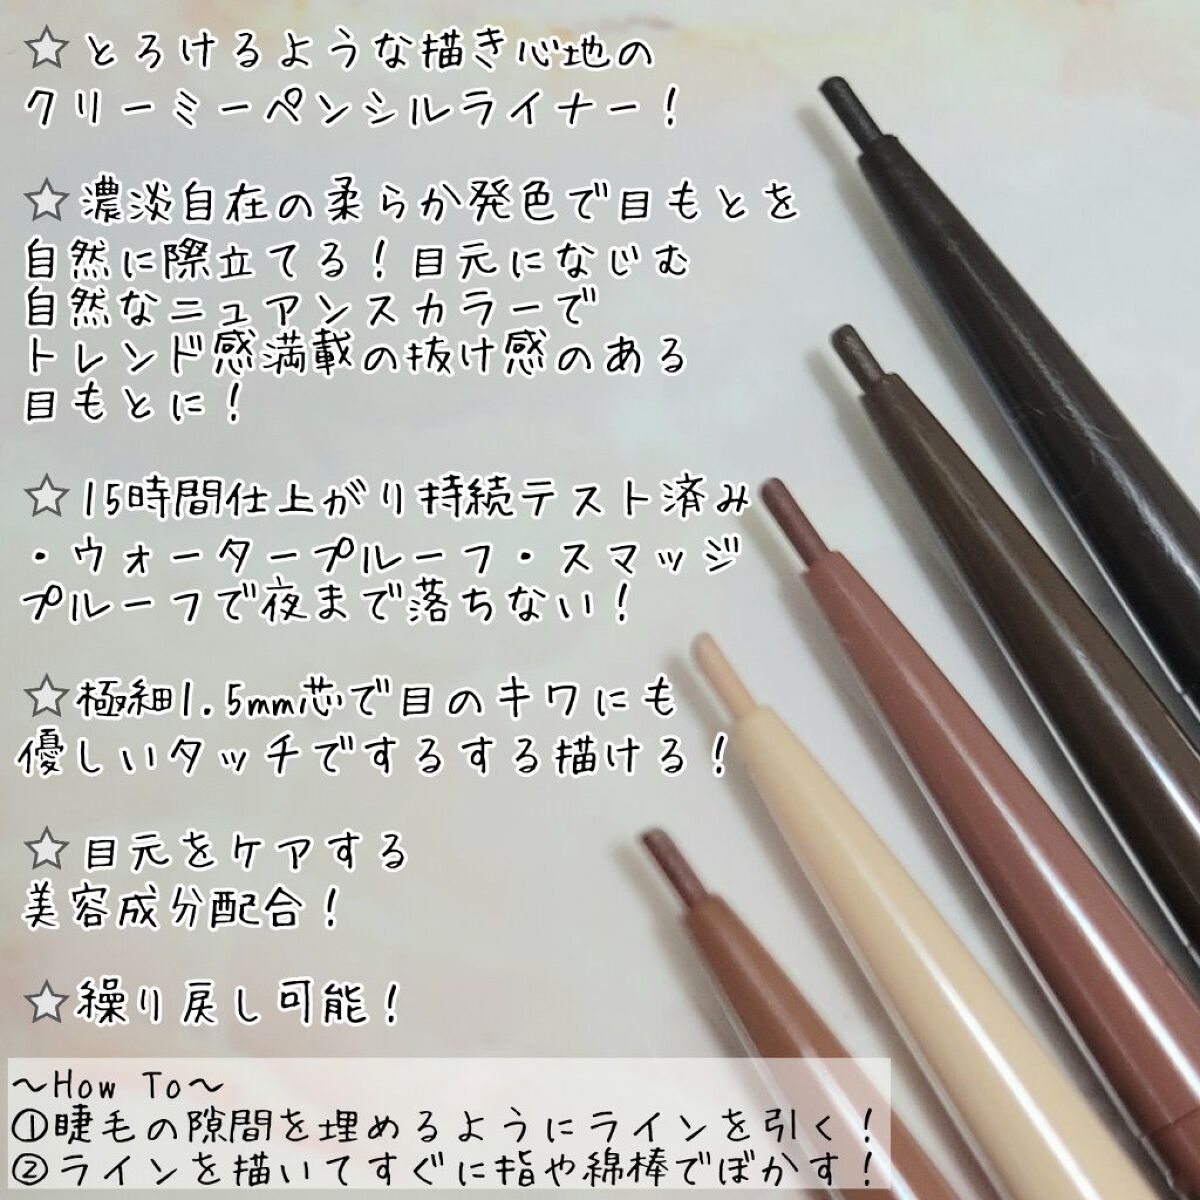 ☆とろけるような描き心地の
クリーミーペンシルライナー！
☆濃淡自在の柔らか発色で目もとを
自然に際立てる！目元になじむ
自然なニュアンスカラーで
トレンド感満載の抜け感のある
目もとに！
☆15時間仕上がり持続テスト済み
・ウォータープルーフ・スマッジ
プルーフで夜まで落ちない！
☆極細1.5mm芯で目のキワにも
優しいタッチでするする描ける！
☆目元をケアする
美容成分配合！
☆繰り戻し可能！
～How To～
①睫毛の隙間を埋めるようにラインを引く！
②ラインを描いてすぐに指や綿棒でぼかす！